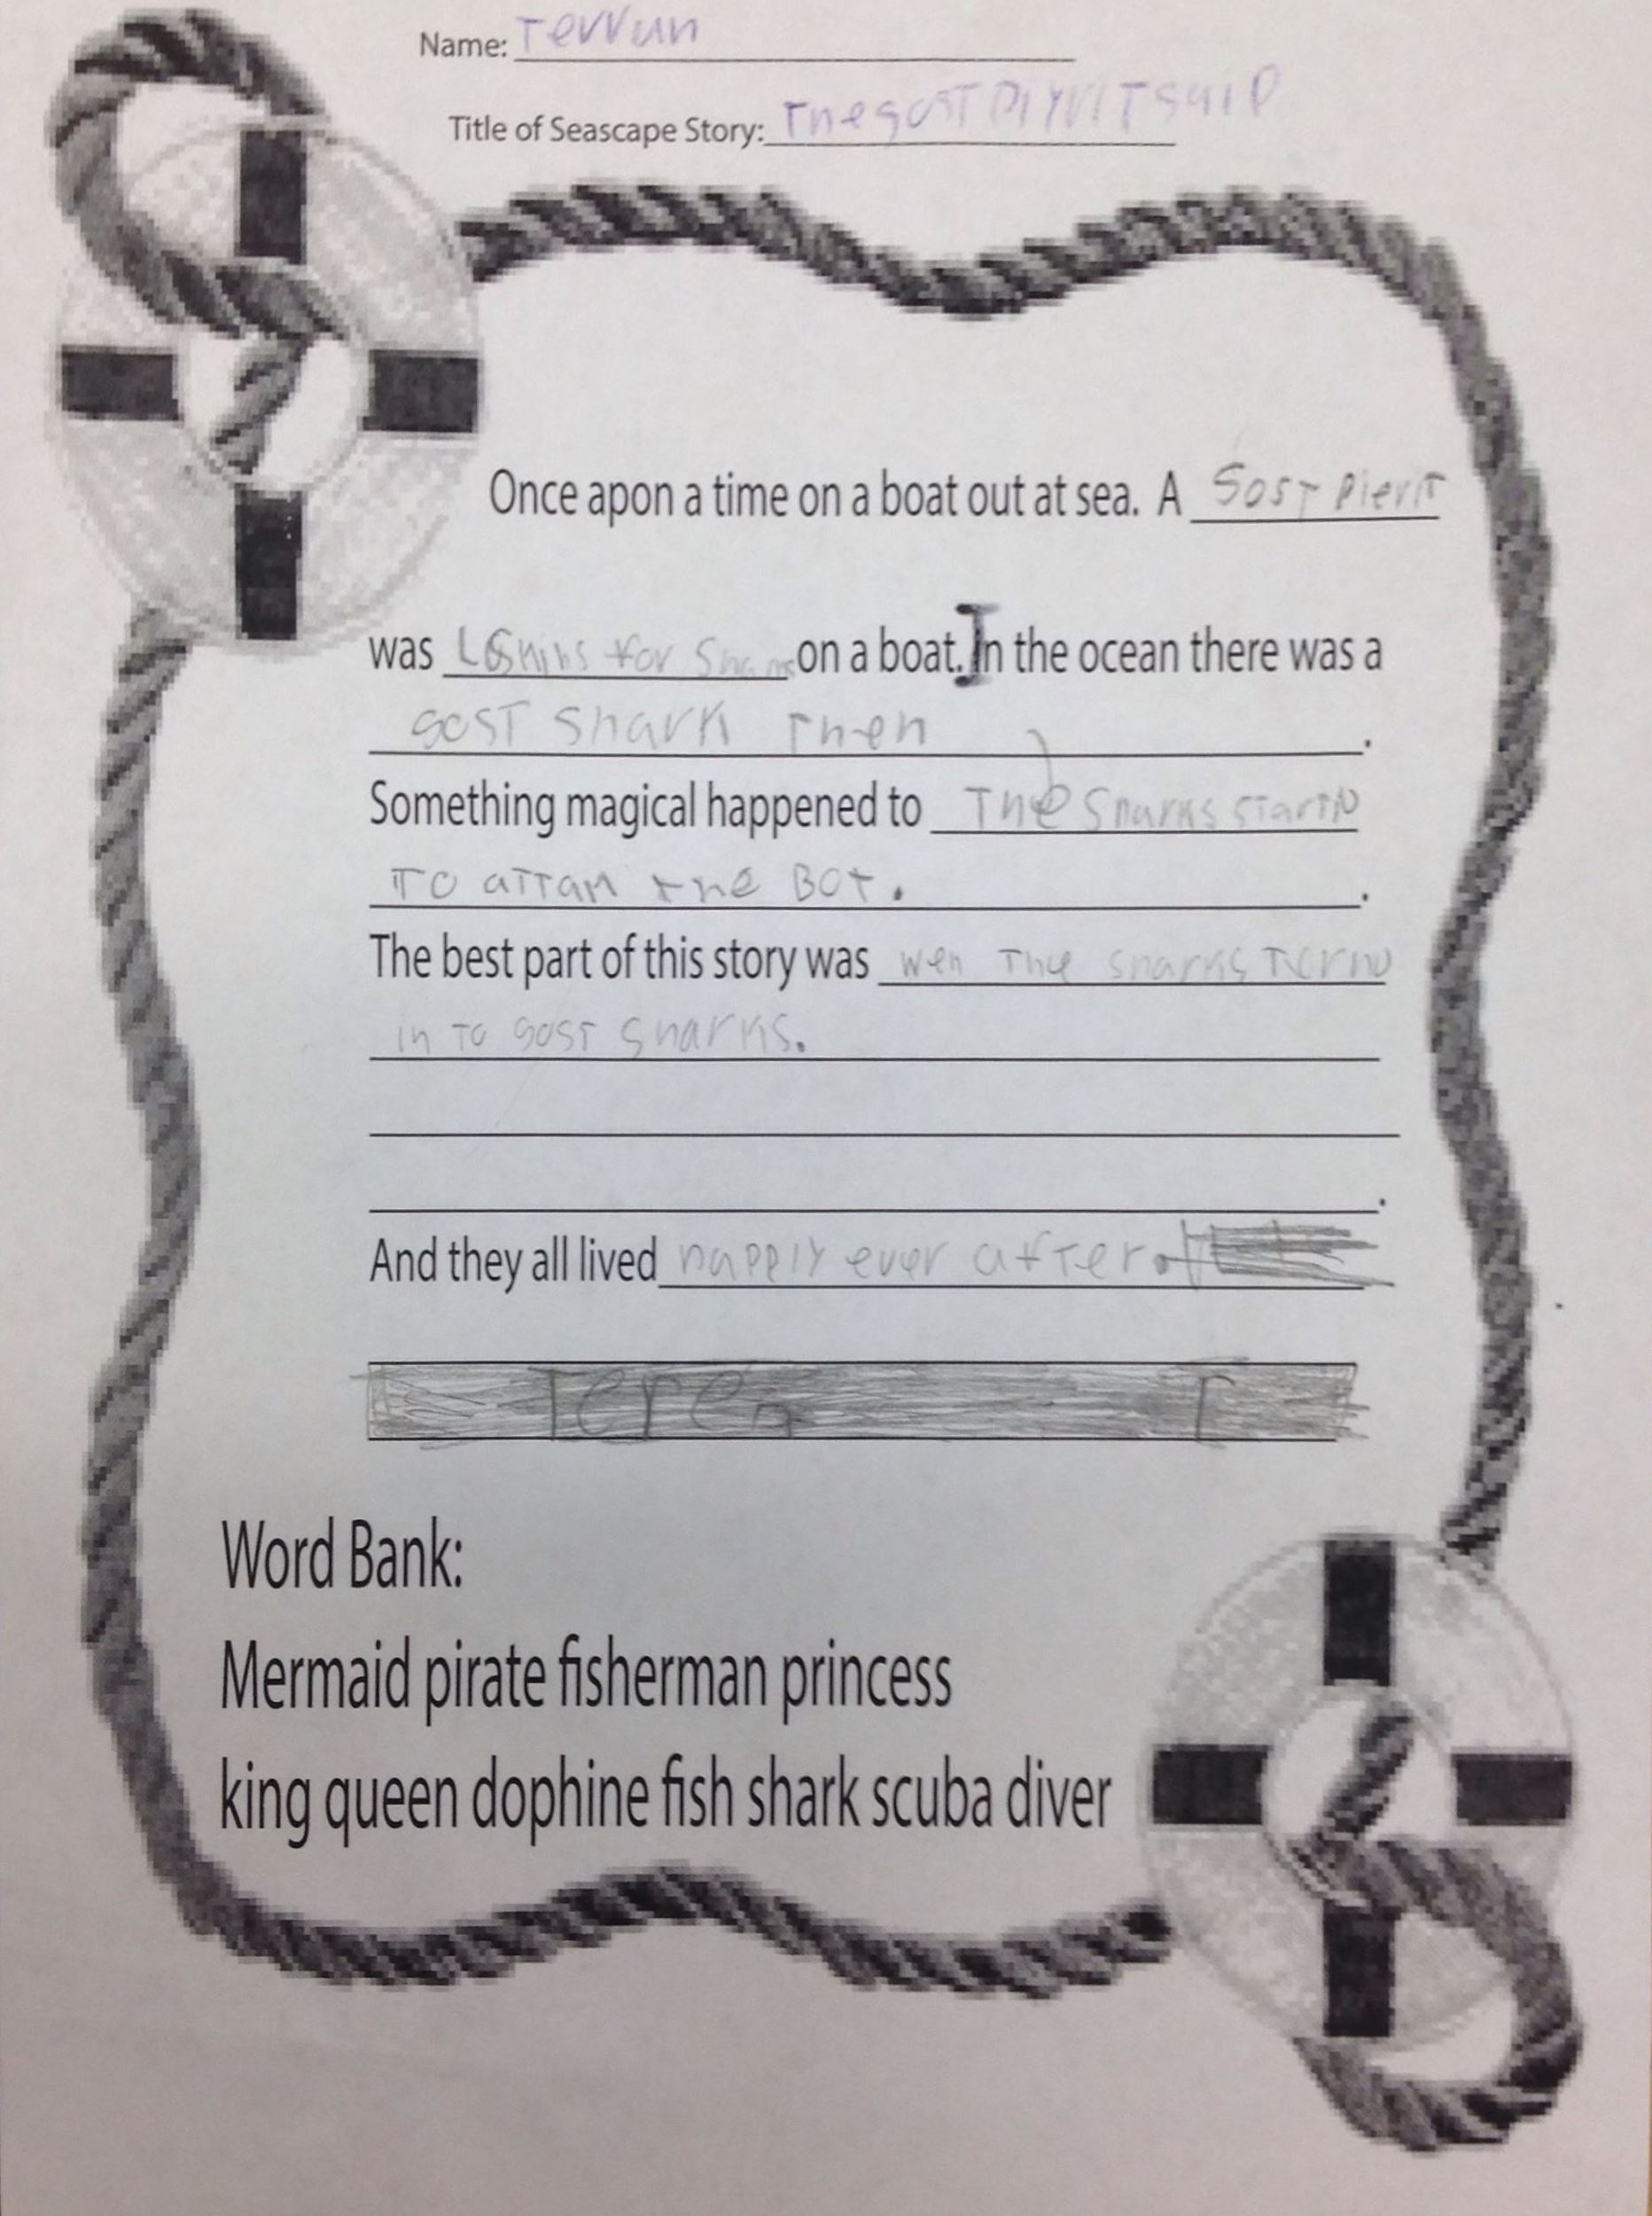 Name: Terrun
Title of Seascape Story: The gost
Once apon a time on a boat out at sea. A Gost Pierit
was for on a boat. In the ocean there was a
gost shark Then .
Something magical happened to The Sharks startid
To attak the BOt. .
The best part of this story was wen The sharks Tornd
in To gost sharks.
.
And they all lived happly ever after.
Teren T
Word Bank:
Mermaid pirate fisherman princess
king queen dophine fish shark scuba diver